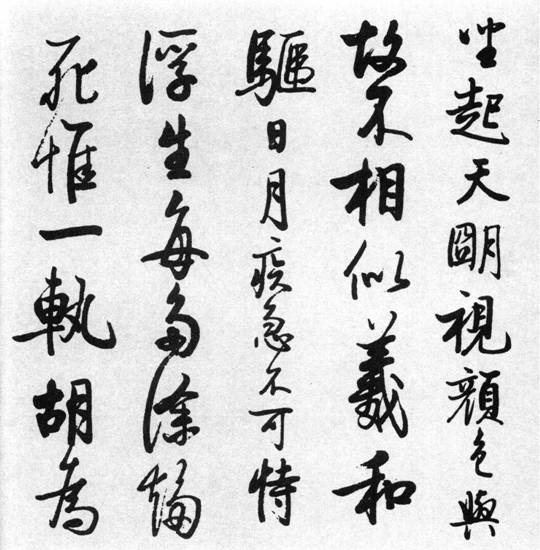 坐起天朙視顏色與
故不相似羲和
驅日月疾急不可恃
浮生每多塗趨
死惟一軌胡為